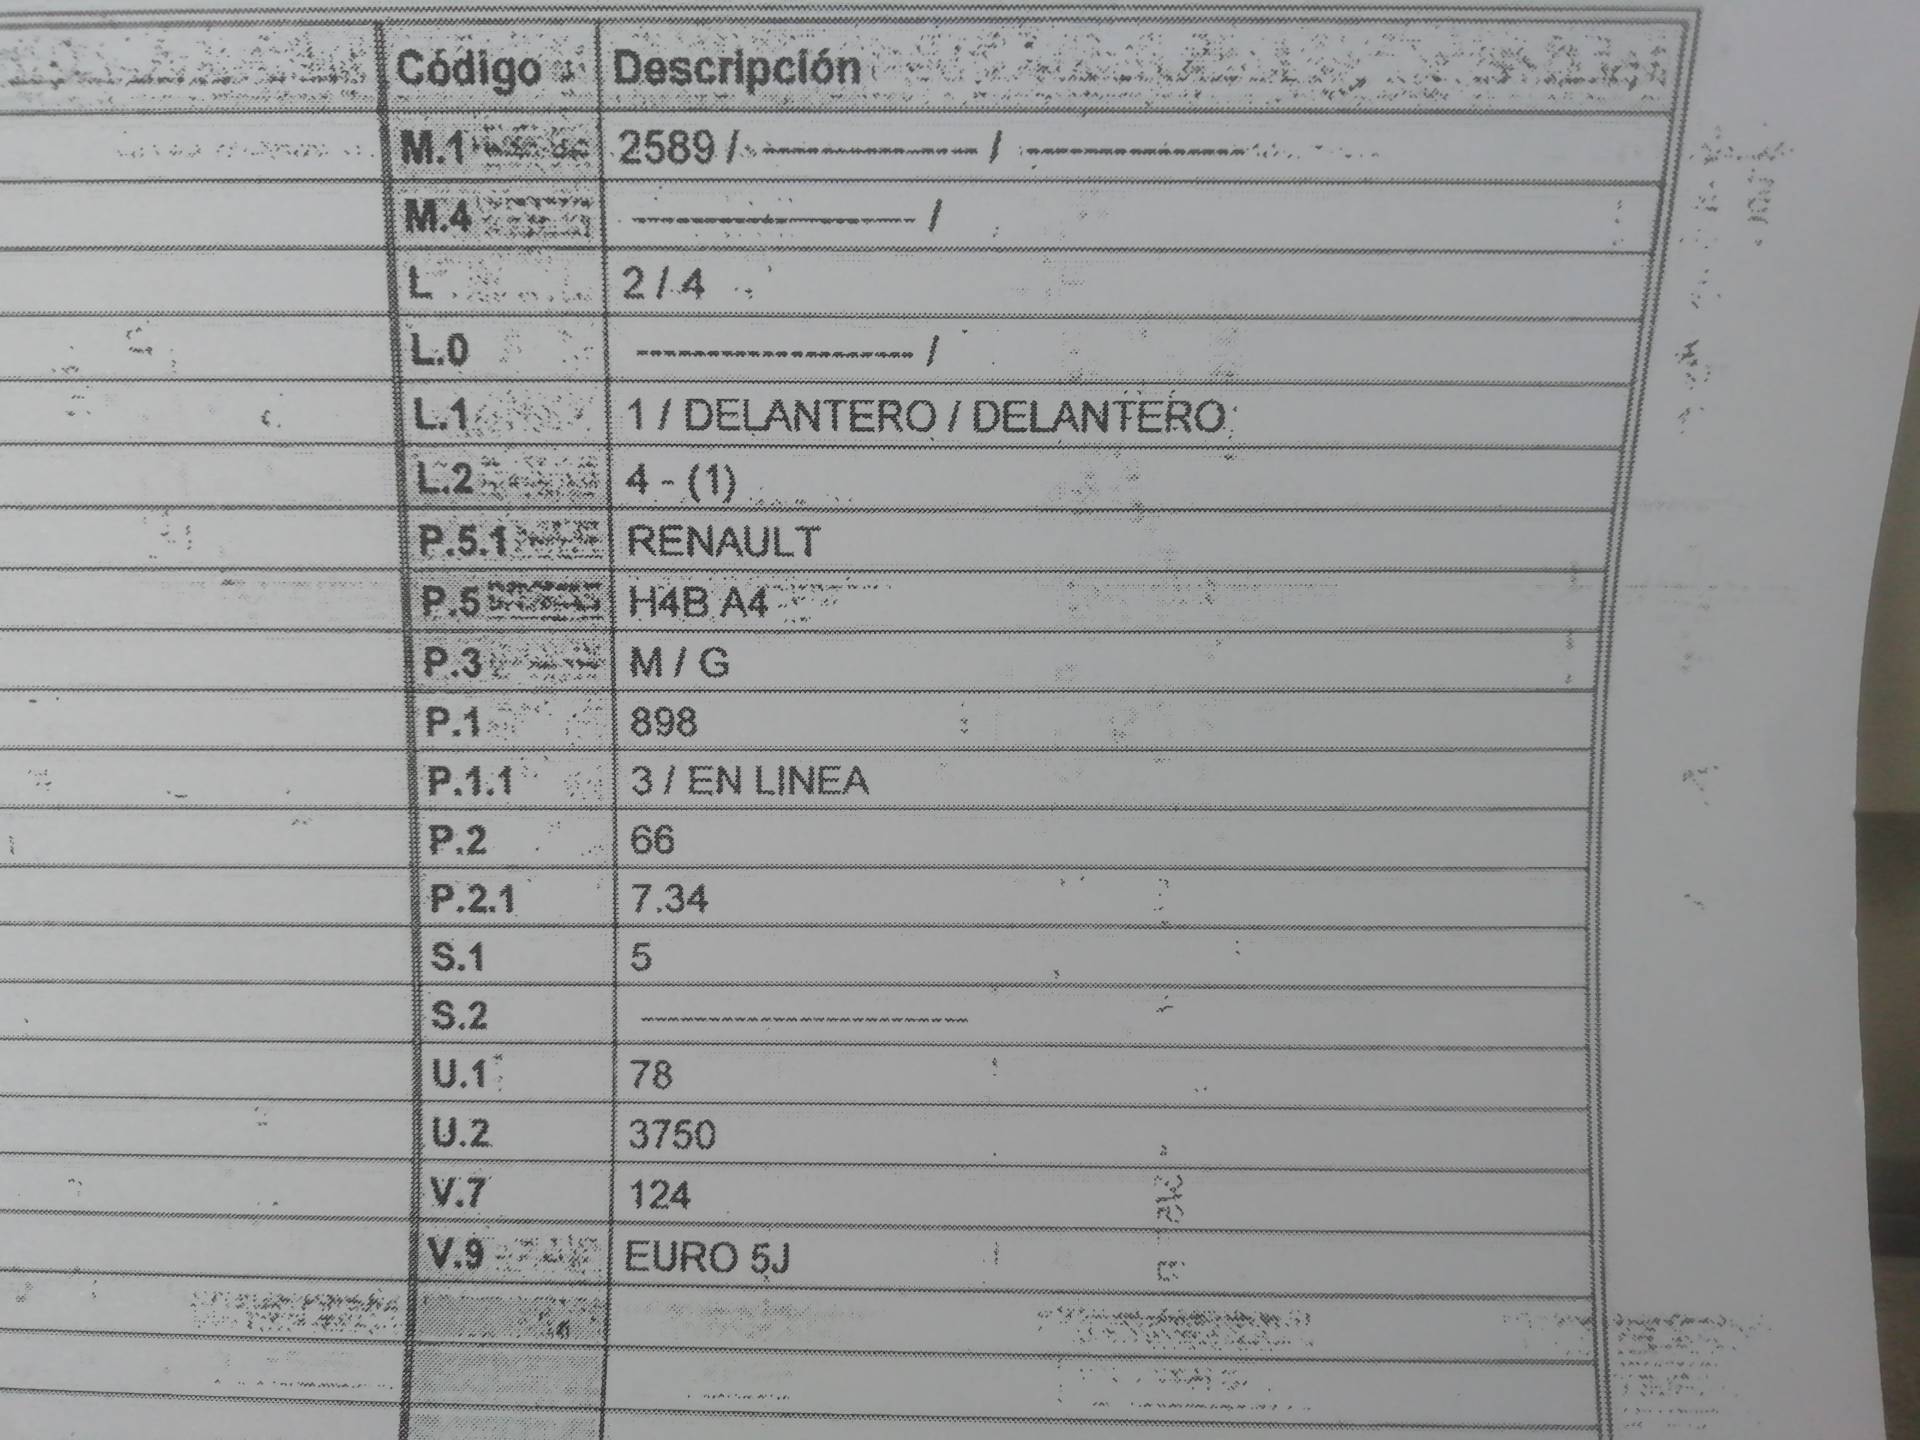 Código Descripción
M.1 2589 / ---------------- / ----------------
M.4 -------------------- /
L 2 / 4
L.0 -------------------- /
L.1 1 / DELANTERO / DELANTERO
L.2 4 - (1)
P.5.1 RENAULT
P.5 H4B A4
P.3 M / G
P.1 898
P.1.1 3 / EN LINEA
P.2 66
P.2.1 7.34
S.1 5
S.2 ------------------------
U.1 78
U.2 3750
V.7 124
V.9 EURO 5J